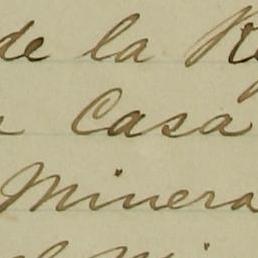 de la
Casa
Minera